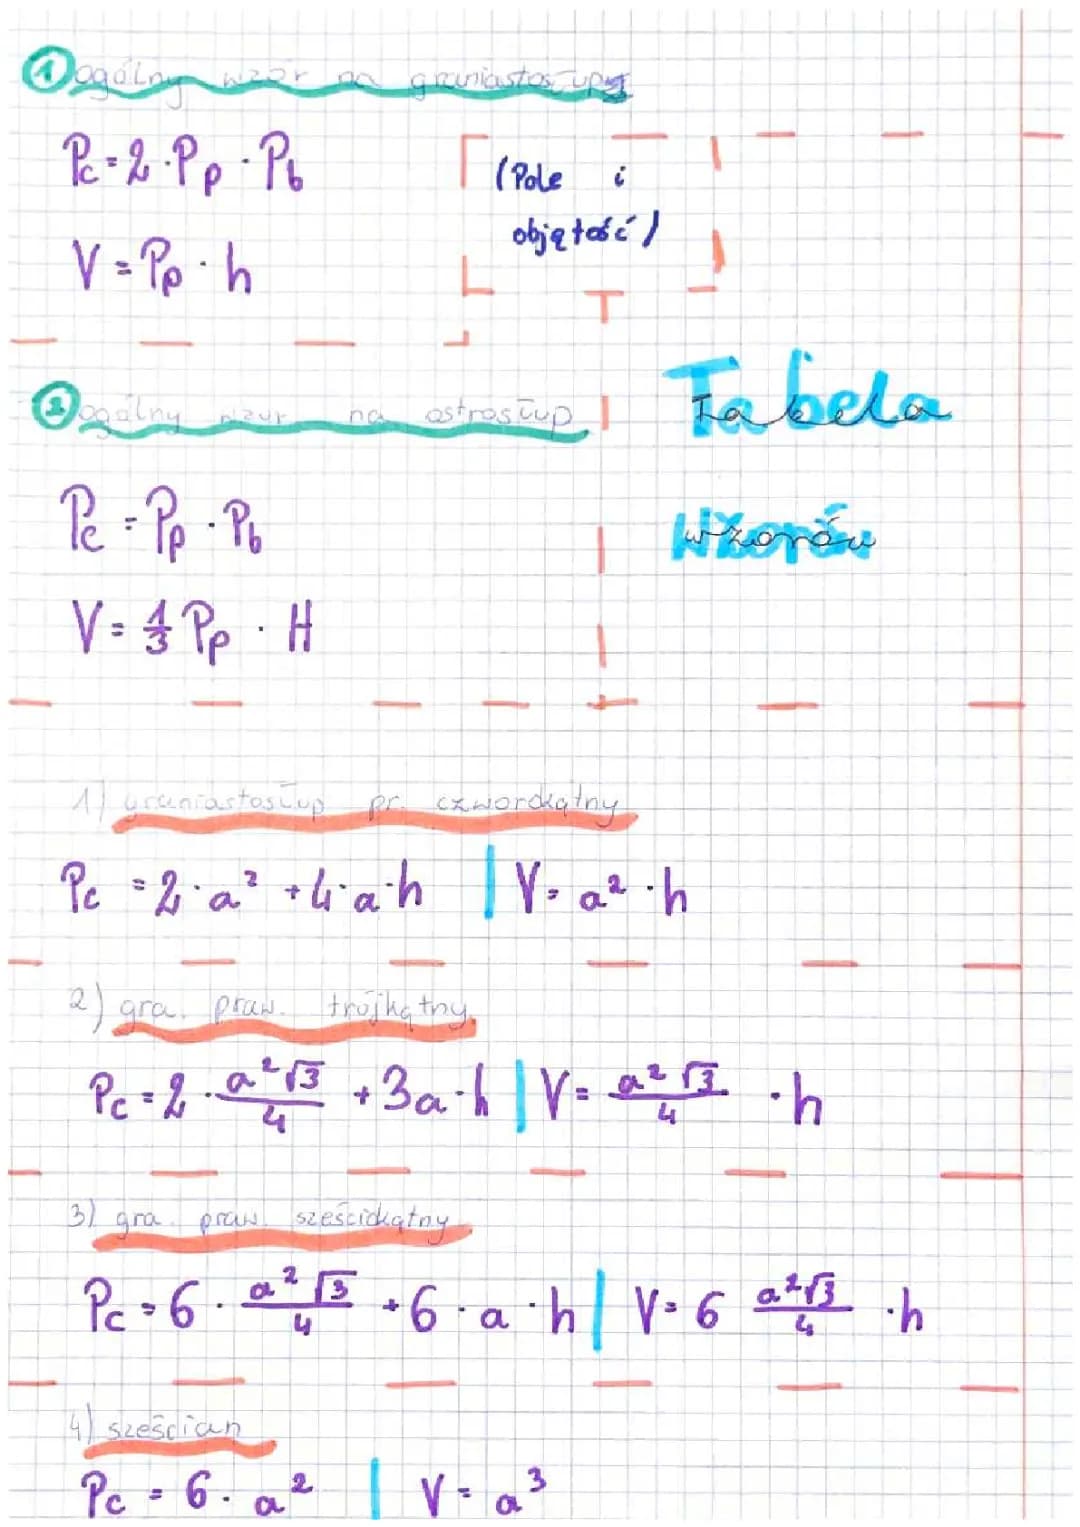 1 ogólny wzór na graniastosłupy
Pc = 2 · Pp · Pb
(Pole i
objętość)
V = Pp · h
2 ogólny wzur na ostrosłup
Tabela
wzorów
Pc = Pp · Pb
V = 1/3 Pp · H
1) graniastosłup pr. czworokątny
Pc = 2 · a² + 4 · a · h | V = a² · h
2) gra. praw. trójkątny
Pc = 2 · a²√3/4 + 3a · h | V = a²√3/4 · h
3) gra. praw. sześciokątny
Pc = 6 · a²√3/4 + 6 · a · h | V = 6 a²√3/4 · h
4) sześcian
Pc = 6 · a² | V = a³